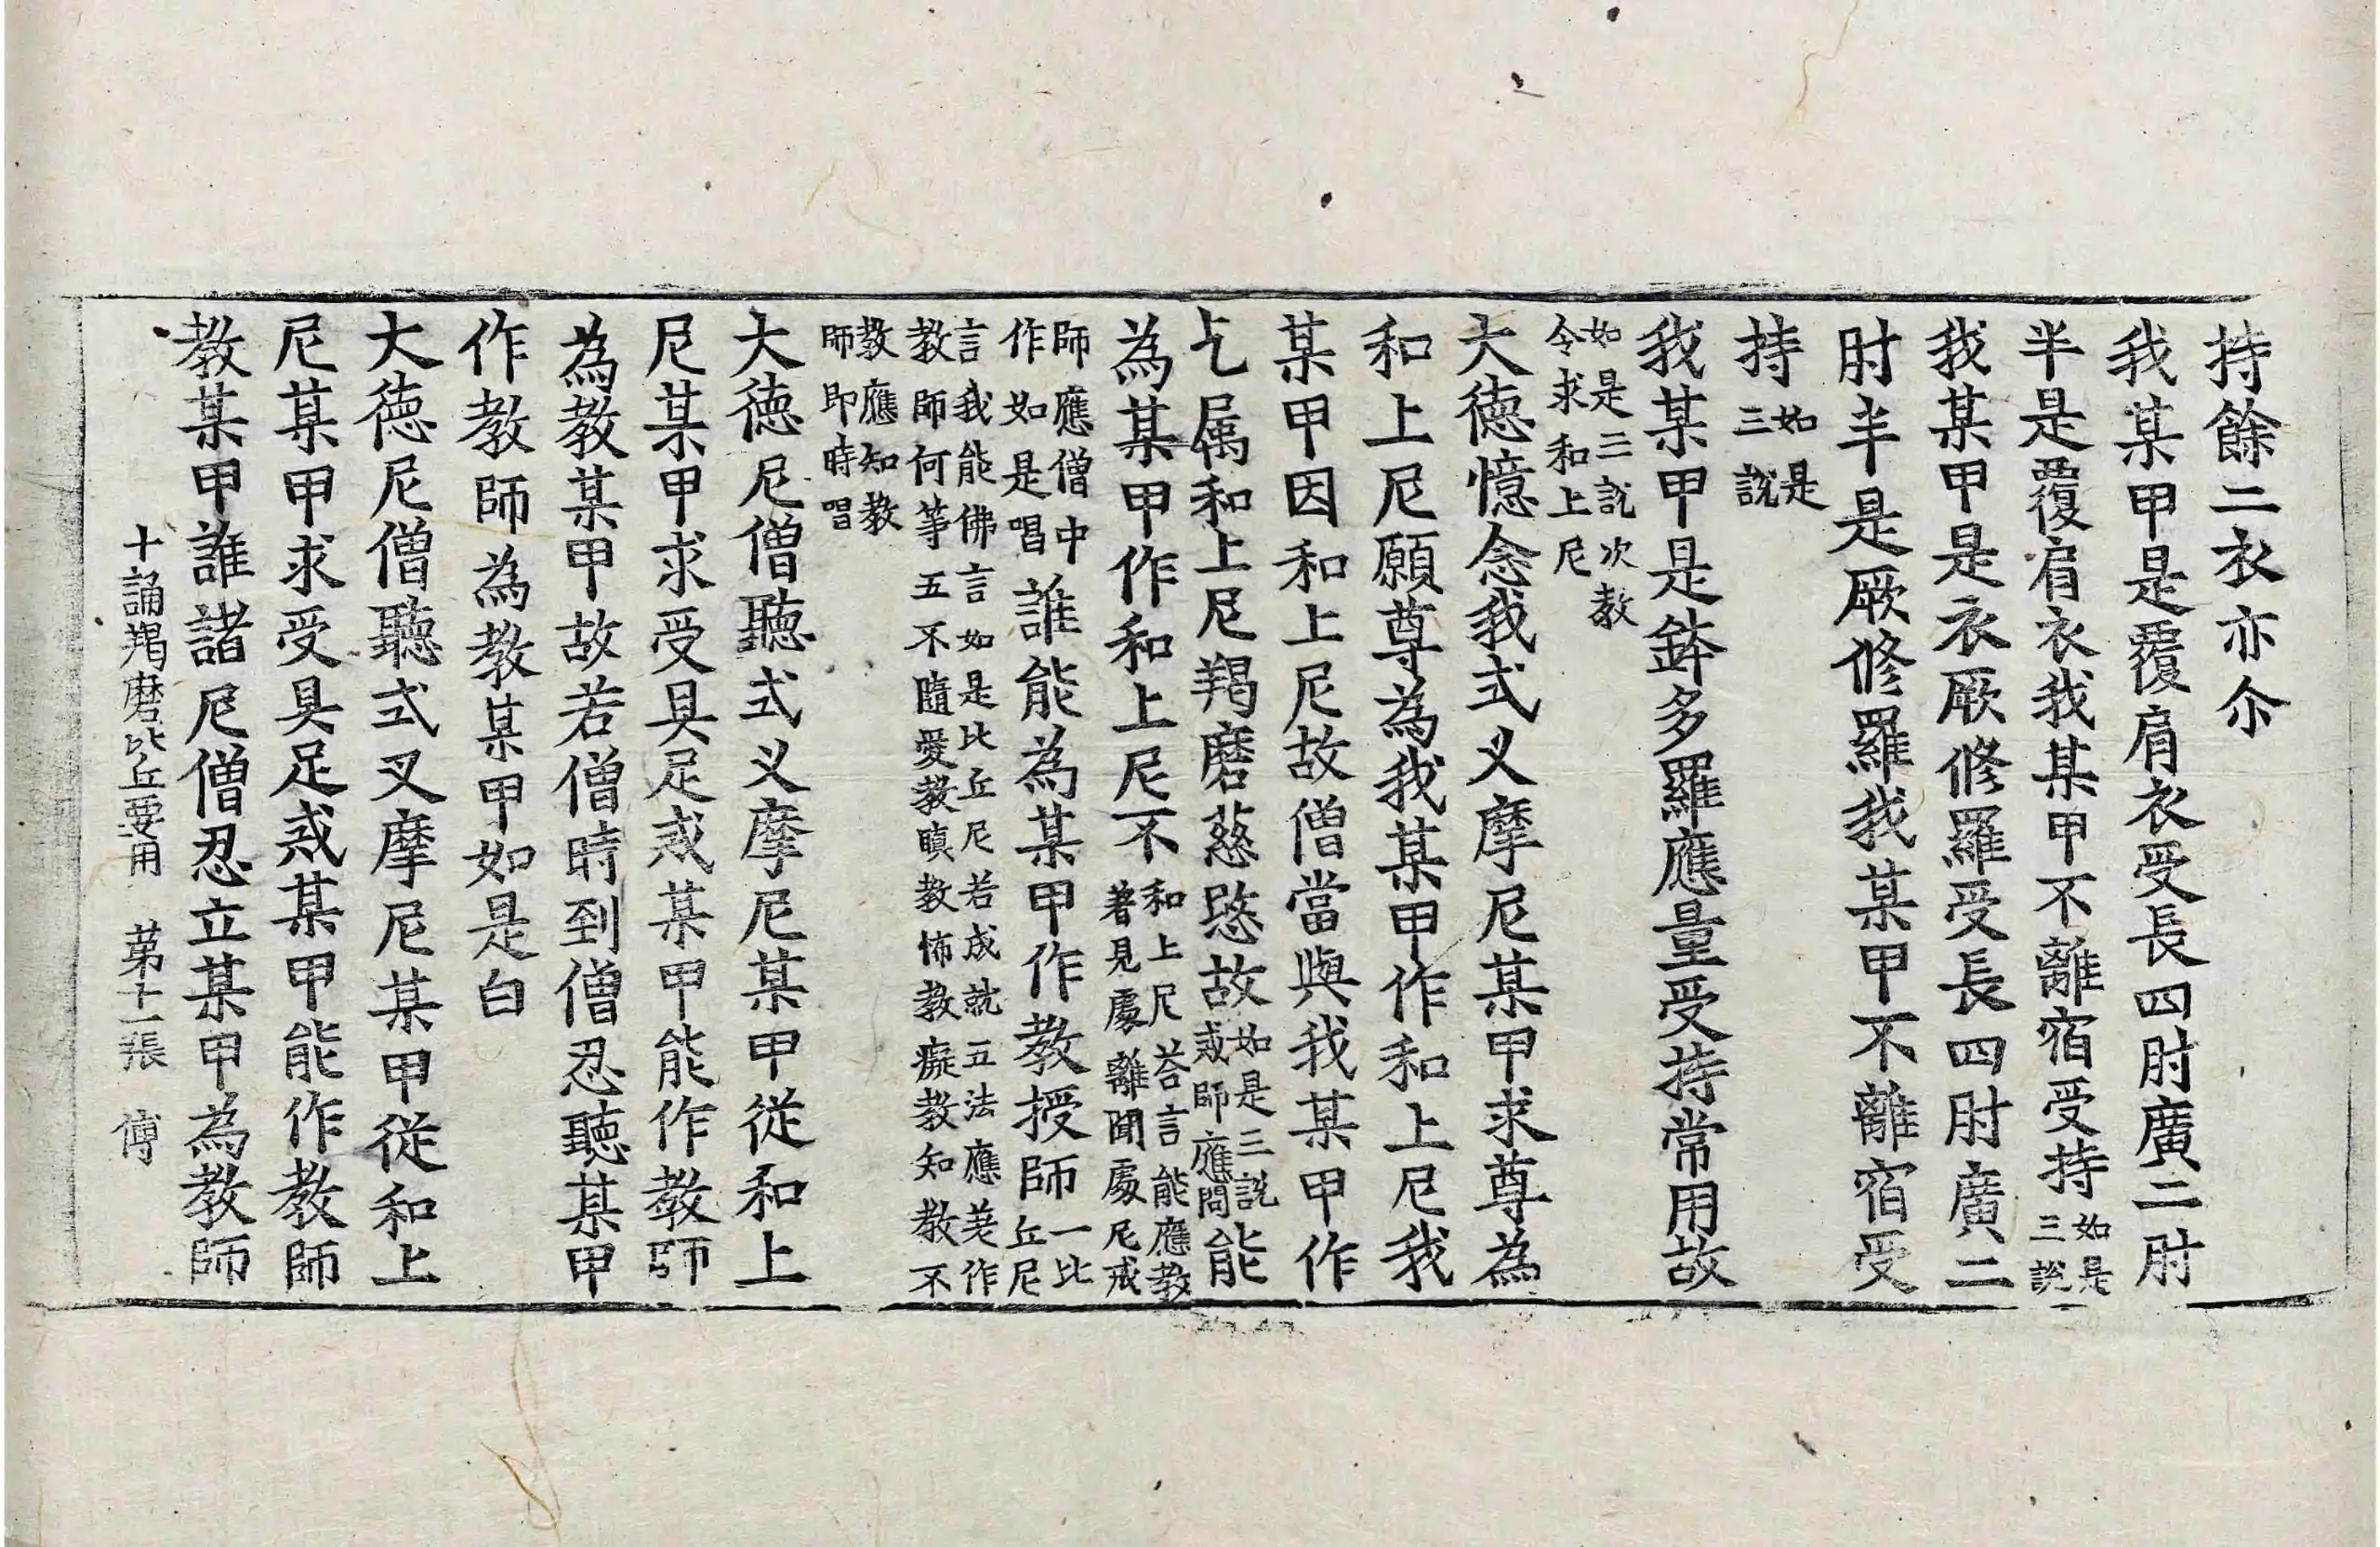 持餘二衣亦尒
我某甲是覆肩衣受長四肘廣二肘
半是覆肩衣我某甲不離宿受持如是三說
我某甲是衣厥修羅受長四肘廣二
肘半是厥修羅我某甲不離宿受
持如是三說
我某甲是鉢多羅應量受持常用故
如是三說次教令求和上尼
大德憶念我式叉摩尼某甲求尊為
和上尼願尊為我某甲作和上尼我
某甲因和上尼故僧當與我某甲作
乞属和上尼羯磨慈愍故如是三說戒師應問能
為某甲作和上尼不和上尼荅言能應教著見處離聞處尼戒
師應僧中作如是唱誰能為某甲作教授師一比丘尼
言我能佛言如是比丘尼若成就五法應差作教師何等五不隨愛教瞋教怖教癡教知教不
教應知教師即時唱
大德尼僧聽式叉摩尼某甲從和上
尼某甲求受具足戒某甲能作教師
為教某甲故若僧時到僧忍聽某甲
作教師為教某甲如是白
大德尼僧聽式叉摩尼某甲從和上
尼某甲求受具足戒某甲能作教師
教某甲誰諸尼僧忍立某甲為教師
十誦羯磨比丘要用 苐十一張 傅